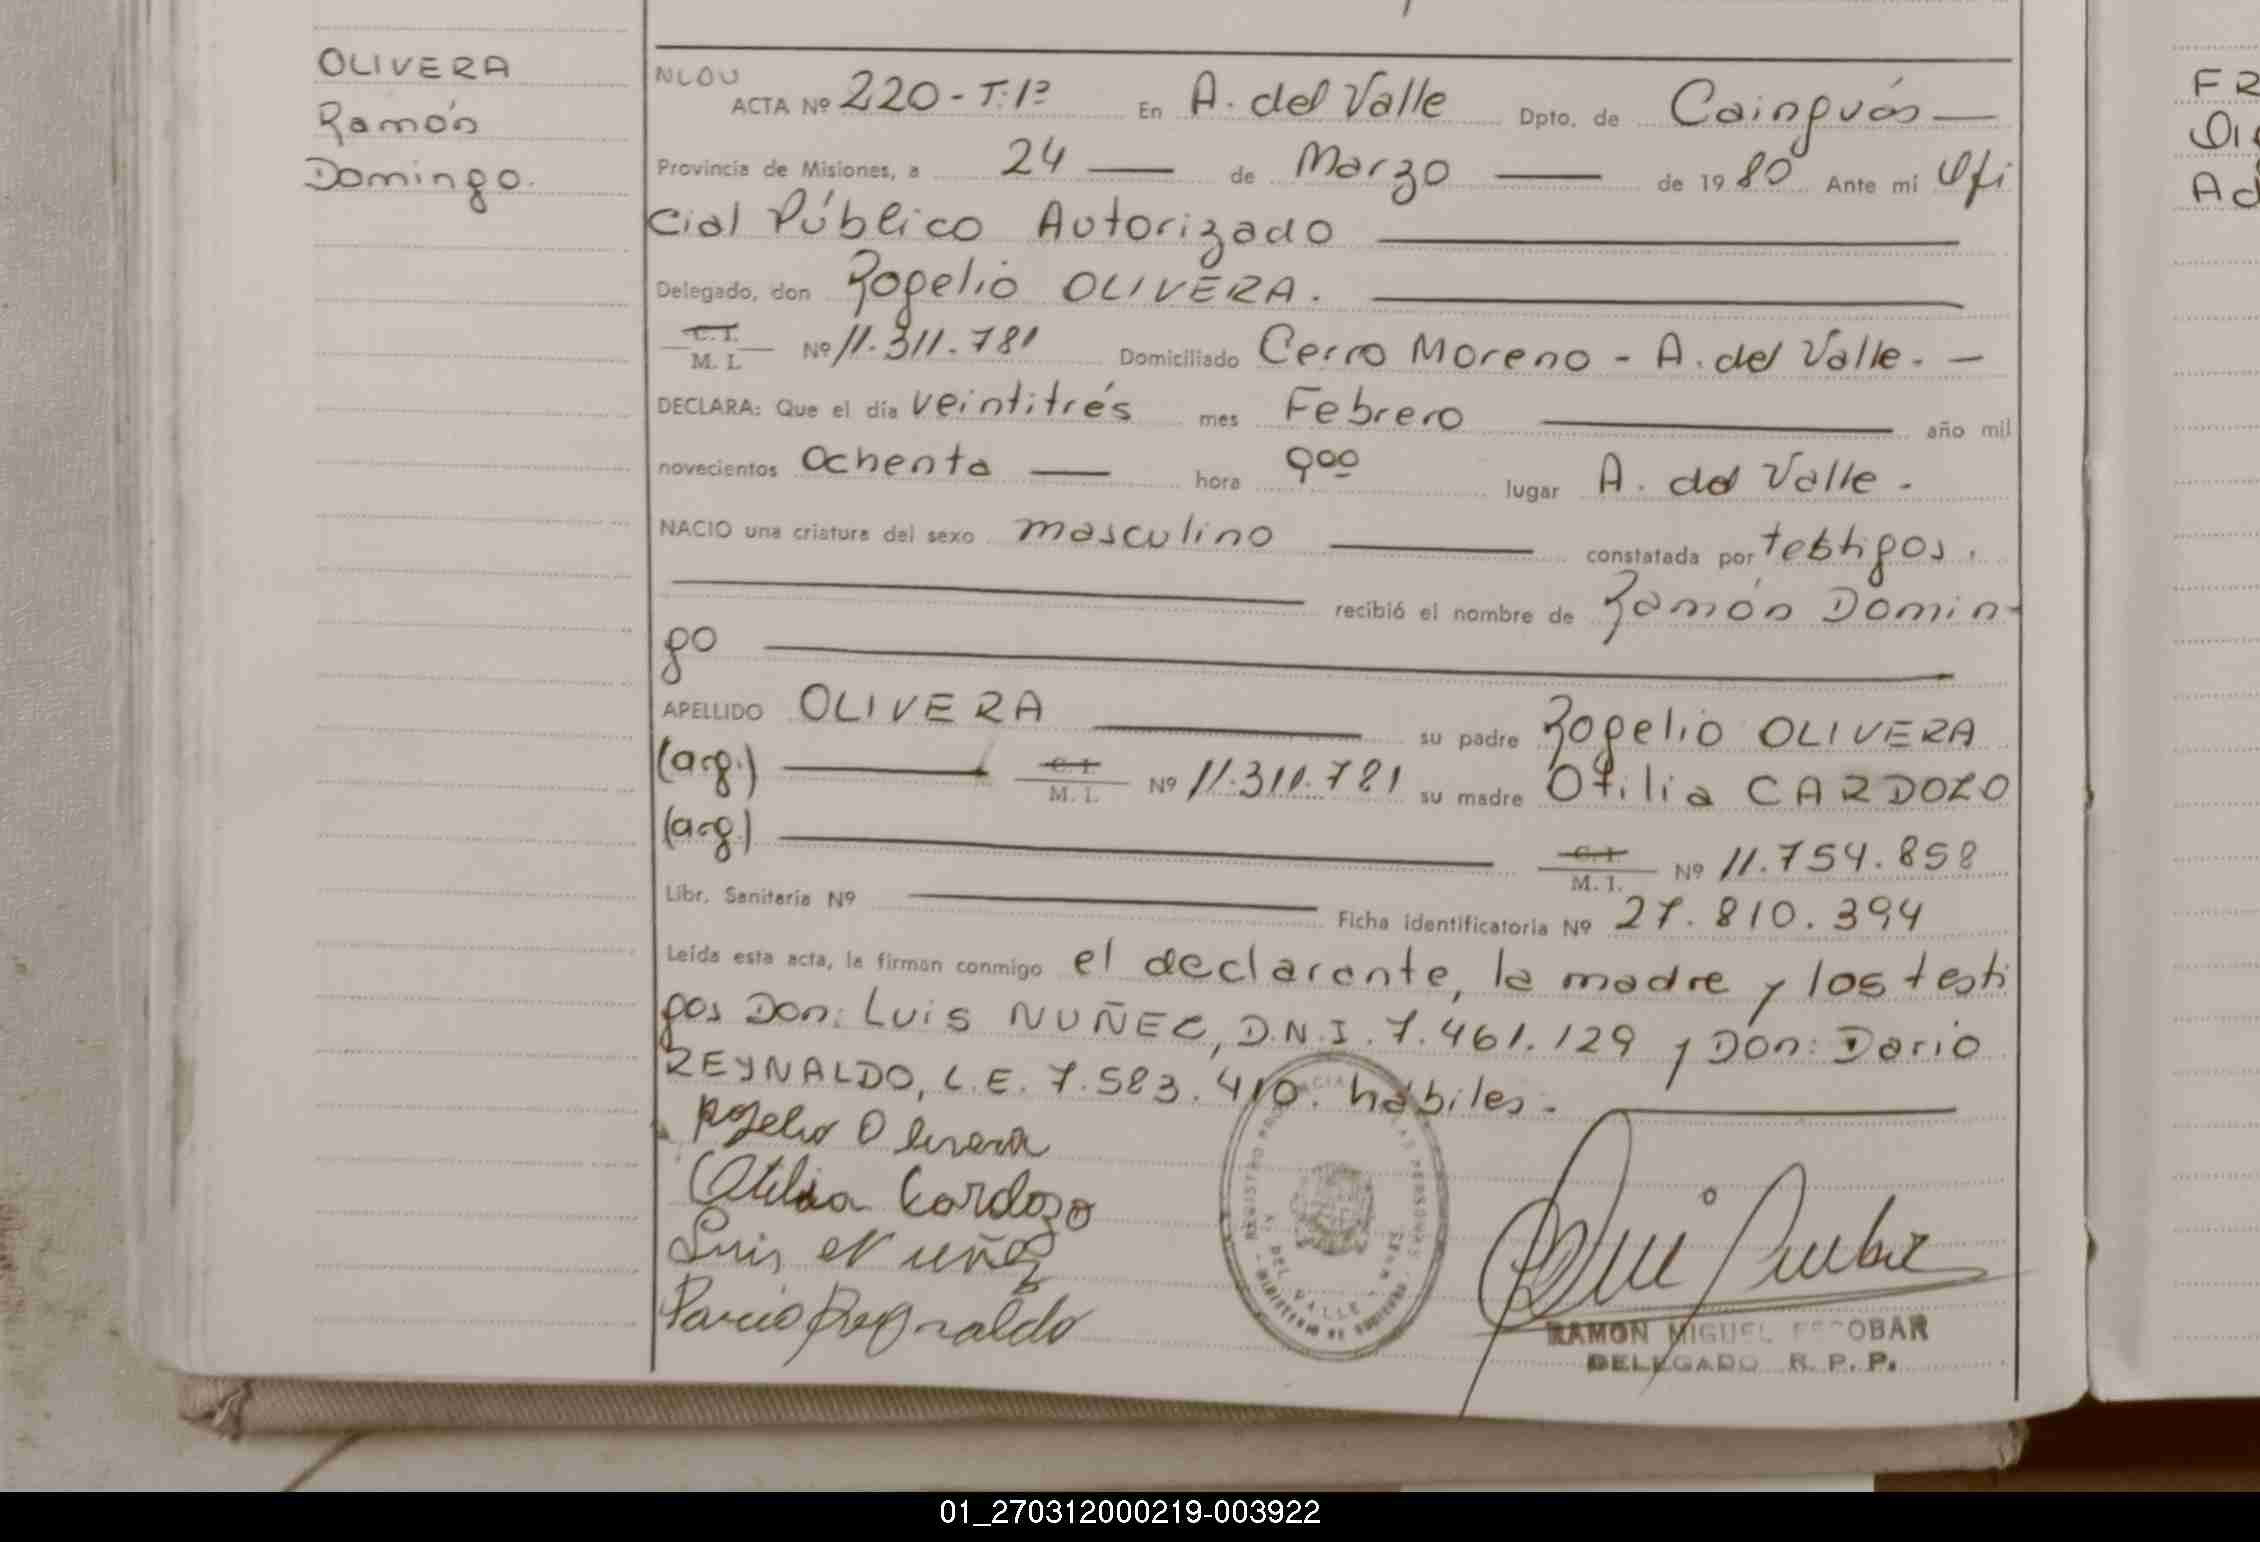 OLIVERA
Ramón
Domingo.
NLOU
ACTA Nº 220 - T: 1º En A. del Valle Dpto. de Cainguás
Provincia de Misiones, a 24 de Marzo de 1980 Ante mi Ofi
cial Público Autorizado
Delegado, don Rogelio OLIVERA.
C. I.
M. I. Nº 11.311.781 Domiciliado Cerro Moreno - A. del Valle. -
DECLARA: Que el día veintitrés mes Febrero año mil
novecientos ochenta hora 9 00 lugar A. del Valle.
NACIO una criatura del sexo masculino constatada por testigos.
recibió el nombre de Ramón Domin-
go
APELLIDO OLIVERA su padre Rogelio OLIVERA
(arg.) C. I. M. I. Nº 11.311.781 su madre Otilia CARDOZO
(arg.) C. I. M. I. Nº 11.754.858
Libr. Sanitaria Nº Ficha identificatoria Nº 27.810.394
Leída esta acta, la firman conmigo el declarante, la madre y los testi
gos Don: Luis NUÑEZ, D.N.I. 7.461.129 y Don: Dario
REYNALDO, L.E. 7.583.410. hábiles.
Rogelio Olivera
Otilia Cardozo
Luis Nuñez
Dario Reynaldo
DEL VALLE
RAMON MIGUEL ESCOBAR
DELEGADO R. P. P.
FR
Ad
01_270312000219-003922